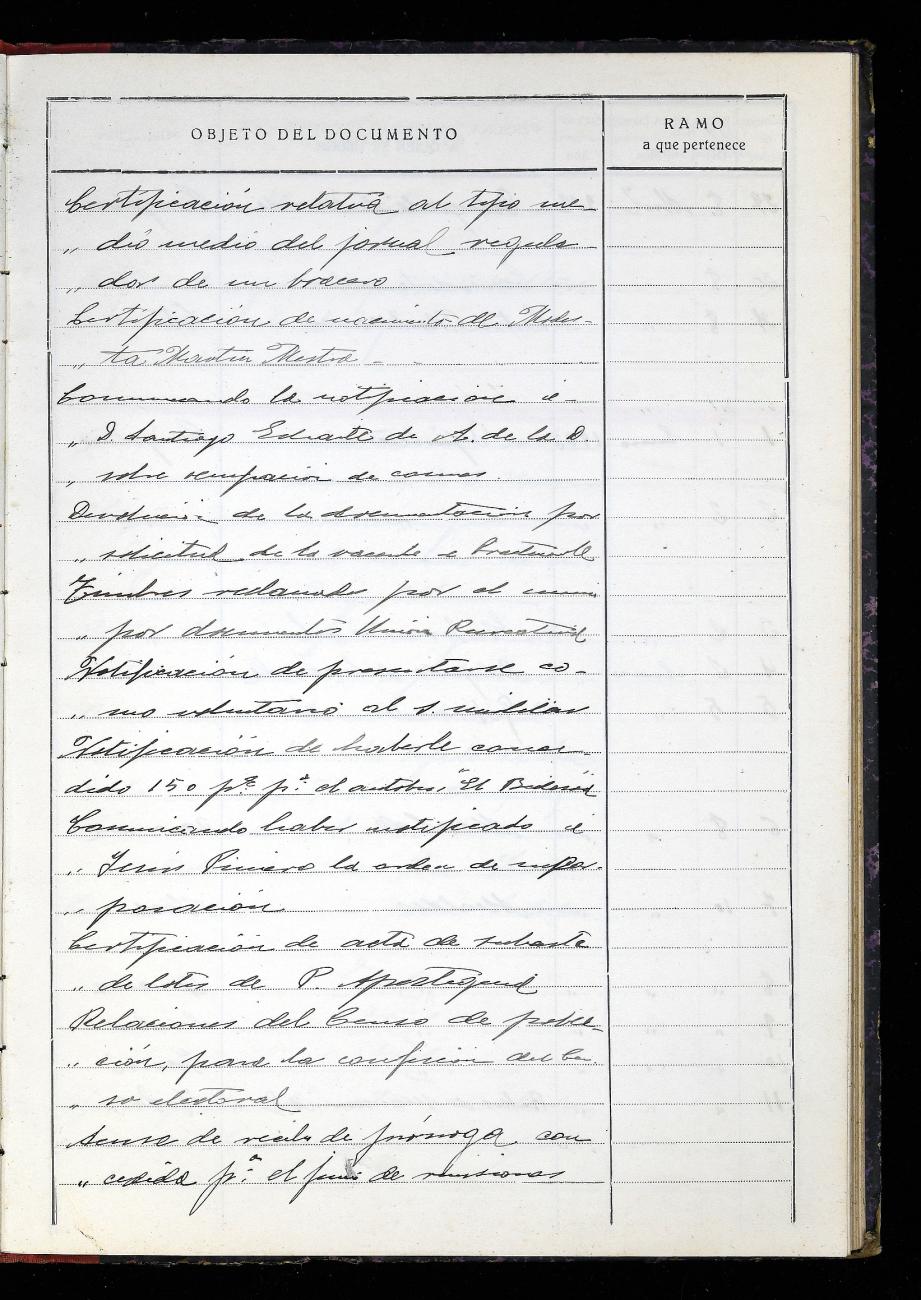 OBJETO DEL DOCUMENTO
RAMO
a que pertenece
Certificación relativa al tipo me-
„ dio medio del jornal regula
„ dor de un bracero
Certificación de nacimiento de Modes-
„ ta Martin
Comunicando la notificación á
„ D. Santiago de A. de la D.
„ sobre de
Devolución de la documentación por
„ solicitud de la vacante
Timbres reclamados por el
„ por documentos Unión
Notificación de presentarse co-
„ mo voluntario al s. militar
Notificación de haberle conce-
dido 150 pts pª el autobus "El
Comunicando haber notificado á
„ Jesús Piniero la orden de
„ posición
Certificación de acta de subasta
„ de lotes de P. Aposteguia
Relaciones del Censo de pobla-
„ ción, para la confección del Cen
„ so electoral
de prórroga con
„ cedida pª el de